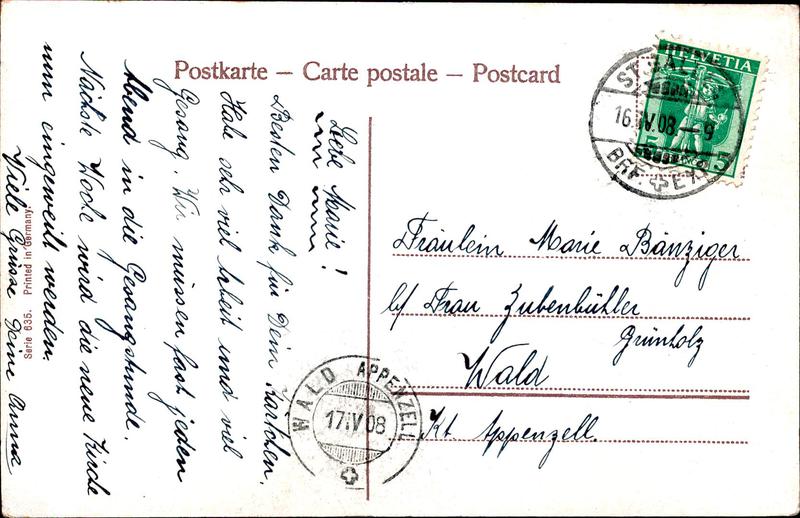 Postkarte – Carte postale – Postcard
HELVETIA
5 5
ST. GALLEN
16.IV.08.–9
BRF. EXP.
Liebe Marie!
Besten Dank für Dein Kärtchen.
Habe sehr viel Arbeit und viel
Gesang. Wir müssen fast jeden
Abend in die Gesangstunde.
Nächste Woche wird die neue Kirche
nun eingeweiht werden.
Viele Grüsse Deine Anna
Fräulein Marie Bänziger
b/ Frau Zubenbühler
Grünholz
Wald
Kt. Appenzell.
WALD APPENZELL
17.IV.08
Serie 636. Printed in Germany.